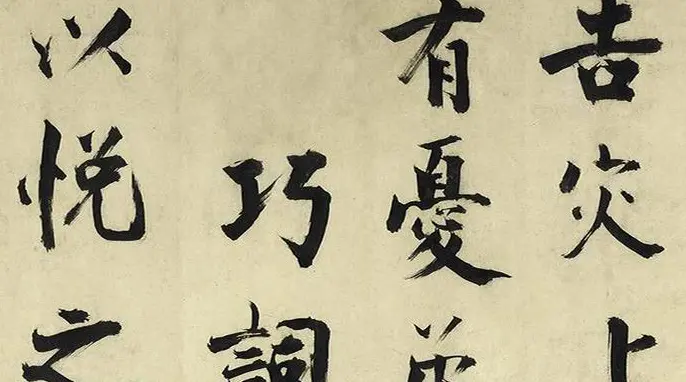 告灾上
有憂
巧詞
以悦之